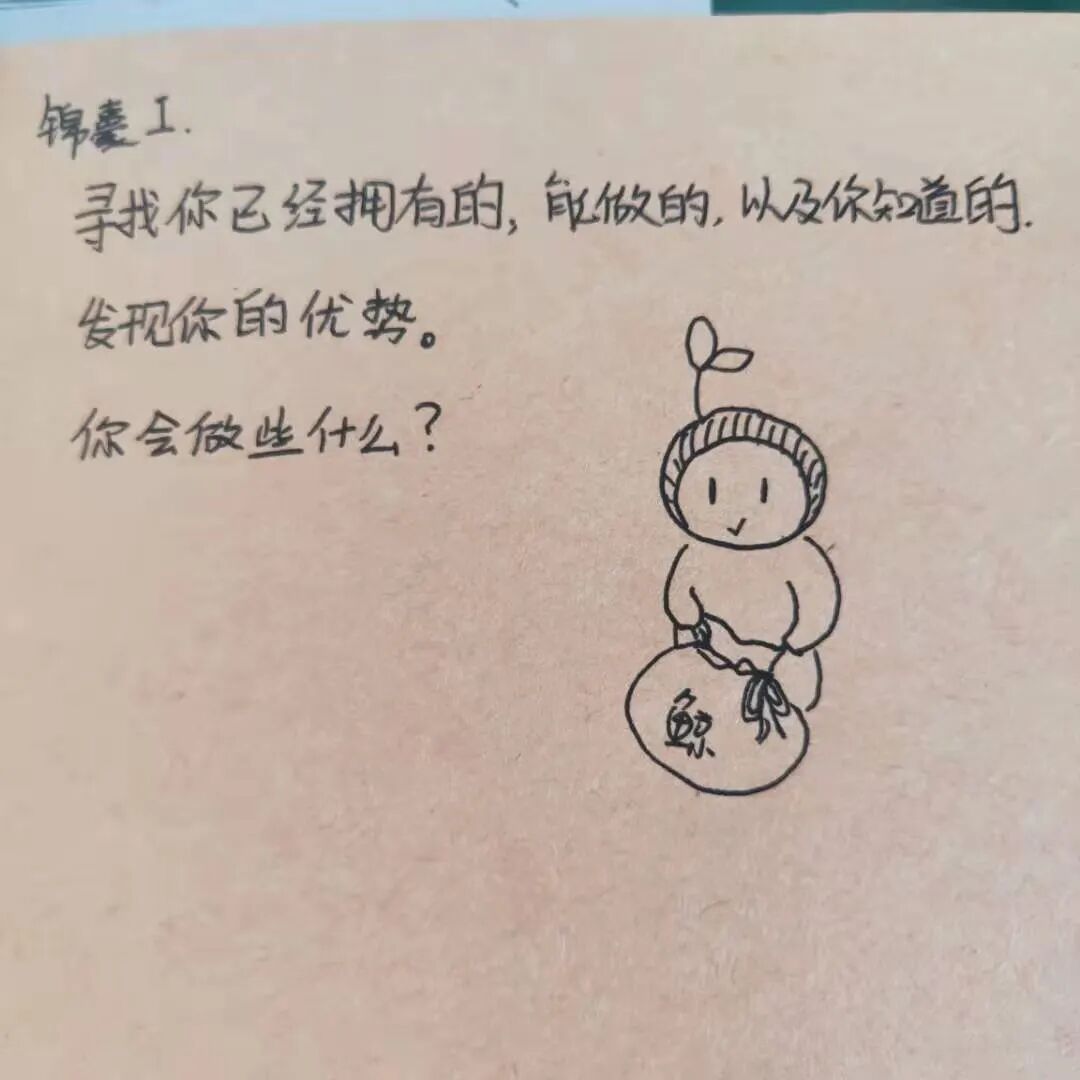 锦囊 I.
寻找你已经拥有的,能做的,以及你知道的.
发现你的优势。
你会做些什么?
鲸